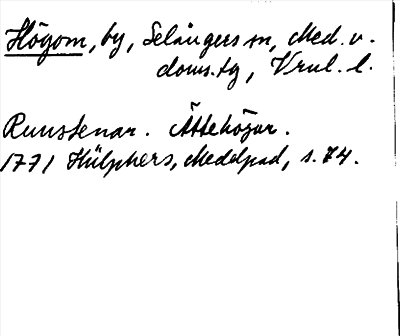 Högom, by, Selångers sn, Med. v.
doms.tg, Vrnl. l.
Runstenar. Ättehögar.
1771 Hülphers, Medelpad, s. 74.